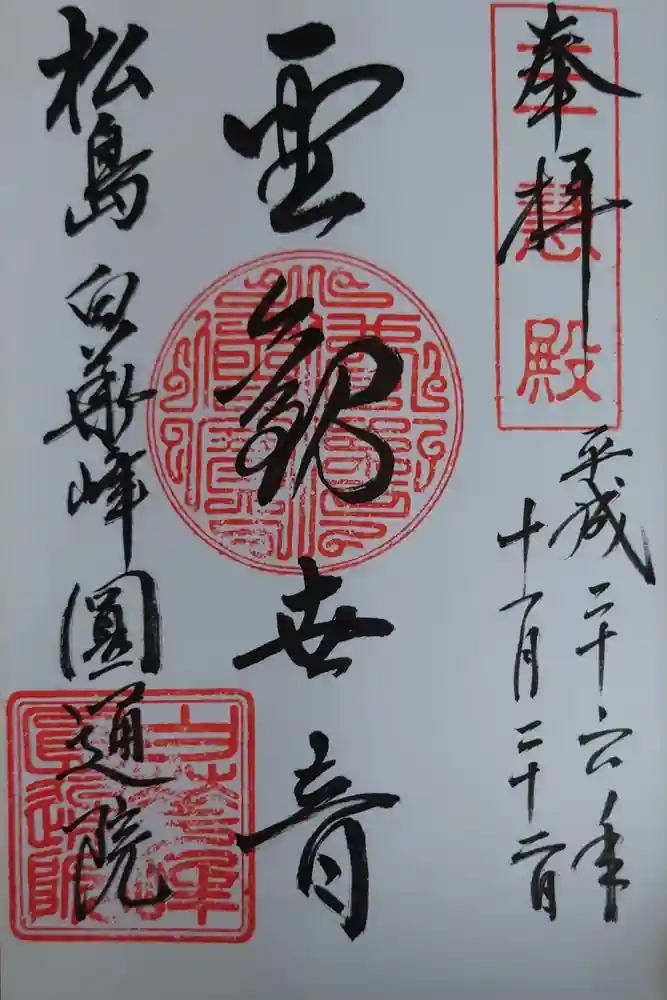 奉拝
三慧殿
平成二十六年
十一月二十二日
聖観世音
松島 白華峰 圓通院